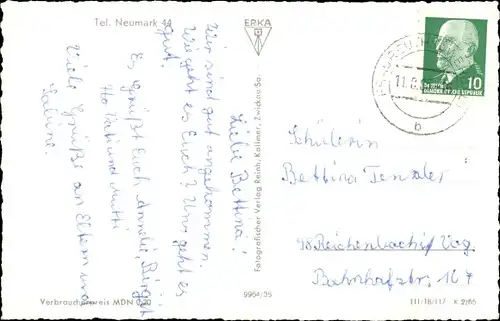 Tel. Neumark 44
ERKA
Liebe Bettina!
Wir sind gut angekommen.
Wie geht es Euch? Uns geht es
gut.
Es grüßt Euch Birgit
Vati und Mutti
Viele Grüße an Eltern und
Sabine.
Fotografischer Verlag Reinh. Kallmer, Zwickau/Sa.
9964/35
DEUTSCHE
DEMOKRATISCHE REPUBLIK
10
b
Schülerin
Bettina Tenzler
98 Reichenbach i/ Vog.
Bahnhofstr. 127
Verbraucherpreis MDN 0,20
III/18/117 K 2/65